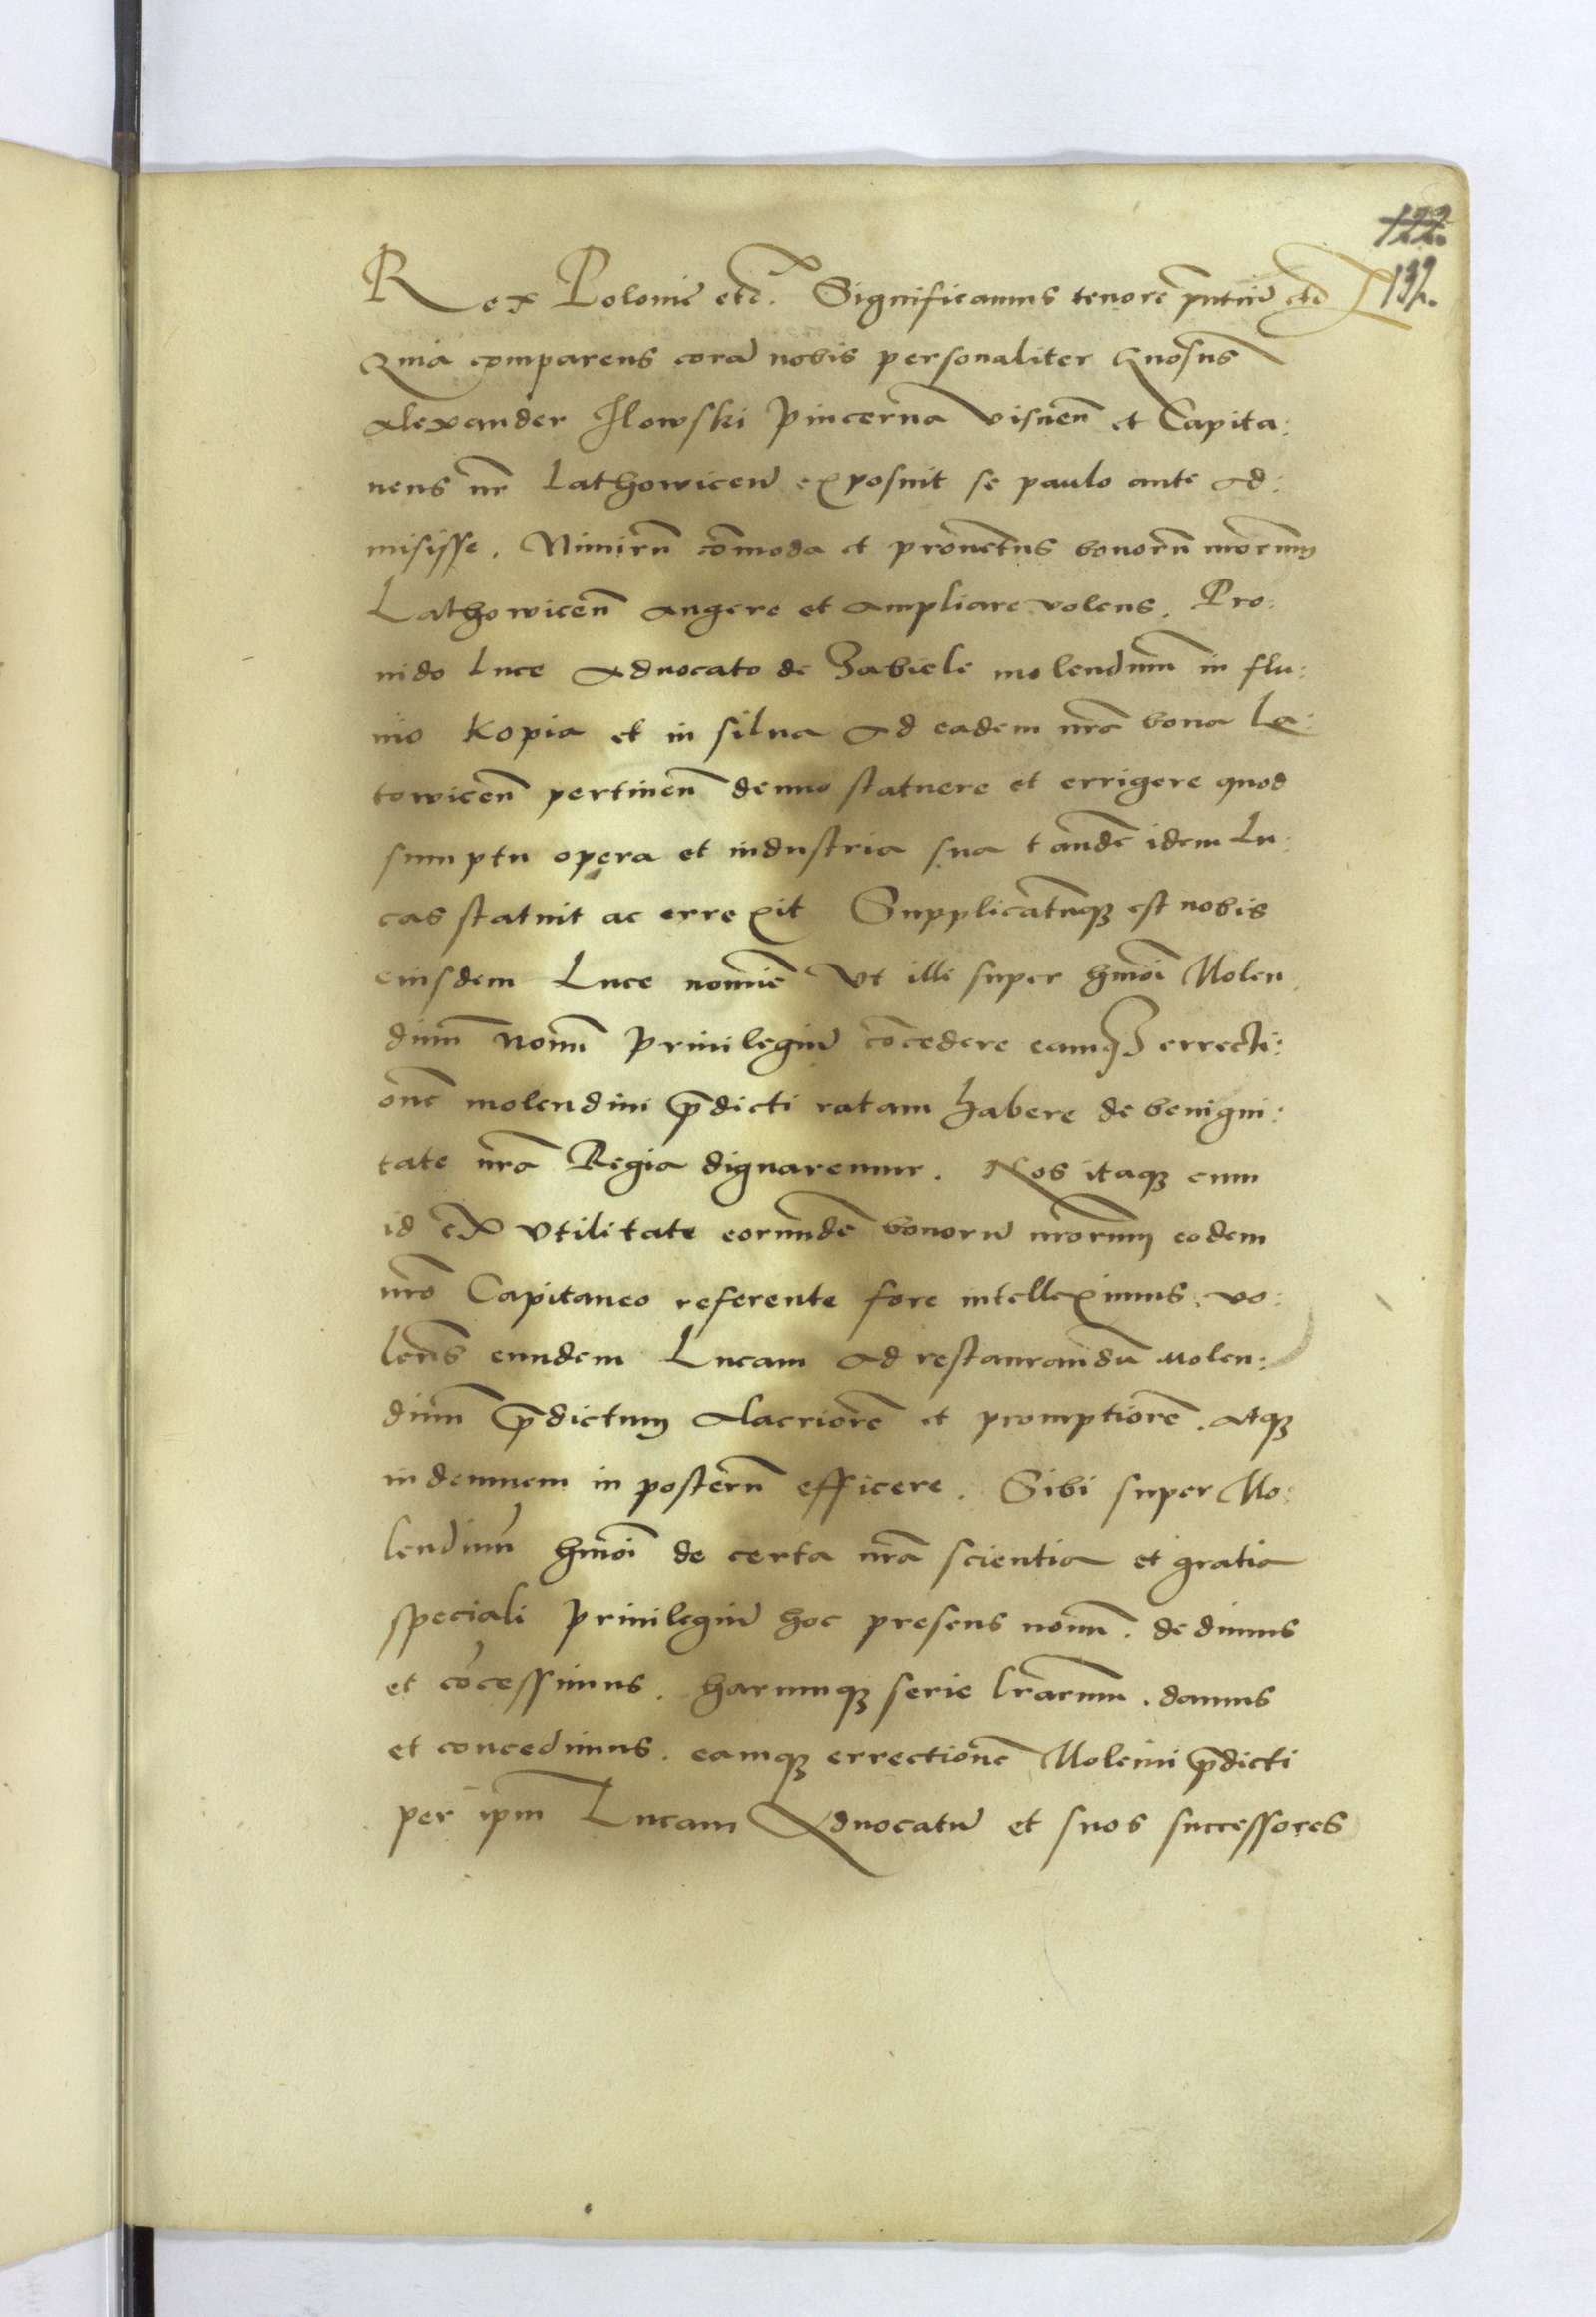 122.
132.
Rex Polonie etc. Significamus tenore pntiu etc
Quia comparens cora nobis personaliter Gnosus
Alexander Ilowski Pincerna Visnen et Capita:
neus nr Lathowicen exposuit se paulo ante ad:
misisse. Nimiru comoda et prouectus bonoru nrorum
Lathowicen augere et ampliare volens. Pro:
uido Luce Aduocato de Zabiele molendinu in flu:
uio Kopia et in silua ad eadem nra bona La:
towicen pertinen denuo statuere et errigere quod
sumptu opera et industria sua tande idem Lu:
cas statuit ac errexit Supplicatuq est nobis
eiusdem Luce nomine Vt illi super hmoi Molen
dinu nouu Priuilegiu cocedere eamq errecti:
one molendini pdicti ratam habere de benigni:
tate nra Regia dignaremur. Nos itaq cum
id ex Vtilitate eorunde bonoru nrorum eodem
nro Capitaneo referente fore intelleximus. vo:
lens eundem Lucam ad restaurandu Molen:
dinu pdictum Alacriore et promptiore. atq
indemnem in posteru efficere. Sibi super Mo:
lendinu hmoi de certa nra scientia et gratia
speciali Priuilegiu hoc presens nouu. dedimus
et cocessimus. harumq serie lrarum. damus
et concedimus. eamq errectione Moleni pdicti
per ipm Lucam Aduocatu et suos successores